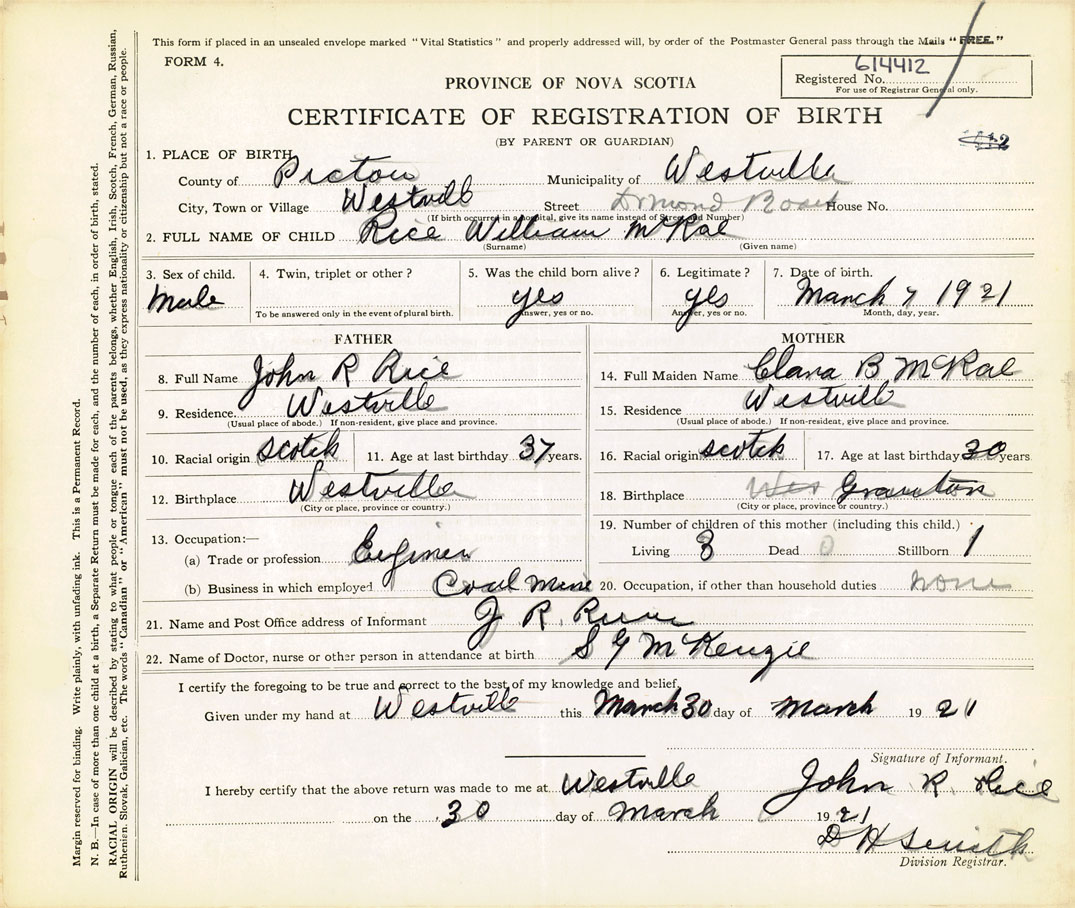 This form if placed in an unsealed envelope marked "Vital Statistics" and properly addressed will, by order of the Postmaster General pass through the Mails "FREE."
FORM 4.
614412
Registered No.
For use of Registrar General only.
PROVINCE OF NOVA SCOTIA
CERTIFICATE OF REGISTRATION OF BIRTH
(BY PARENT OR GUARDIAN)
1. PLACE OF BIRTH
County of Pictou Municipality of Westville
City, Town or Village Westville Street House No.
(If birth occurred in a hospital, give its name instead of Street and Number)
2. FULL NAME OF CHILD Rice William McRae
(Surname) (Given name)
3. Sex of child. 4. Twin, triplet or other? 5. Was the child born alive? 6. Legitimate? 7. Date of birth.
Male yes yes March 7 1921
To be answered only in the event of plural birth. Answer, yes or no. Answer, yes or no. Month, day, year.
FATHER MOTHER
8. Full Name John R Rice 14. Full Maiden Name Clara B McRae
9. Residence. Westville 15. Residence Westville
(Usual place of abode.) If non-resident, give place and province. (Usual place of abode.) If non-resident, give place and province.
10. Racial origin Scotch 11. Age at last birthday 37 years. 16. Racial origin Scotch 17. Age at last birthday 30 years
12. Birthplace Westville 18. Birthplace Wes
(City or place, province or country.) (City or place, province or country.)
13. Occupation:— 19. Number of children of this mother (including this child.)
(a) Trade or profession Living 3 Dead 0 Stillborn 1
(b) Business in which employed Coal Mine 20. Occupation, if other than household duties none
21. Name and Post Office address of Informant J R
22. Name of Doctor, nurse or other person in attendance at birth S G McKenzie
I certify the foregoing to be true and correct to the best of my knowledge and belief.
Given under my hand at Westville this March 30 day of March 1921
Signature of Informant.
I hereby certify that the above return was made to me at Westville John R. Rice
on the 30 day of March 1921
D H Smith
Division Registrar.
Margin reserved for binding. Write plainly, with unfading ink. This is a Permanent Record.
N. B.—In case of more than one child at a birth, a Separate Return must be made for each, and the number of each, in order of birth, stated.
RACIAL ORIGIN will be described by stating to what people or tongue each of the parents belongs, whether English, Irish, Scotch, French, German, Russian,
Ruthenian, Slovak, Galician, etc. The words "Canadian" or "American" must not be used, as they express nationality or citizenship but not a race or people.